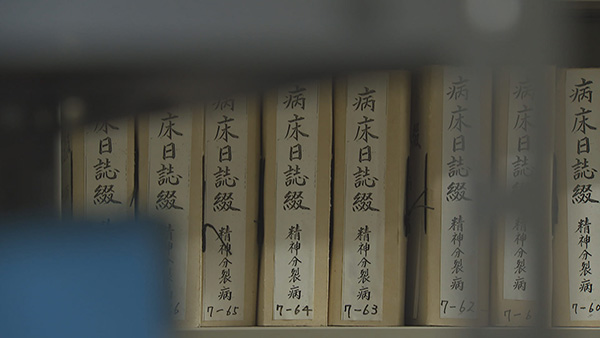 床日誌綴
床日誌綴
病床日誌綴 精神分裂病
7-65
病床日誌綴 精神分裂病
7-64
病床日誌綴 精神分裂病
7-63
病床日誌綴 精神分裂病
7-62
病床日誌綴 精神分裂病
7-6
病床日誌綴 精神分裂病
7-60